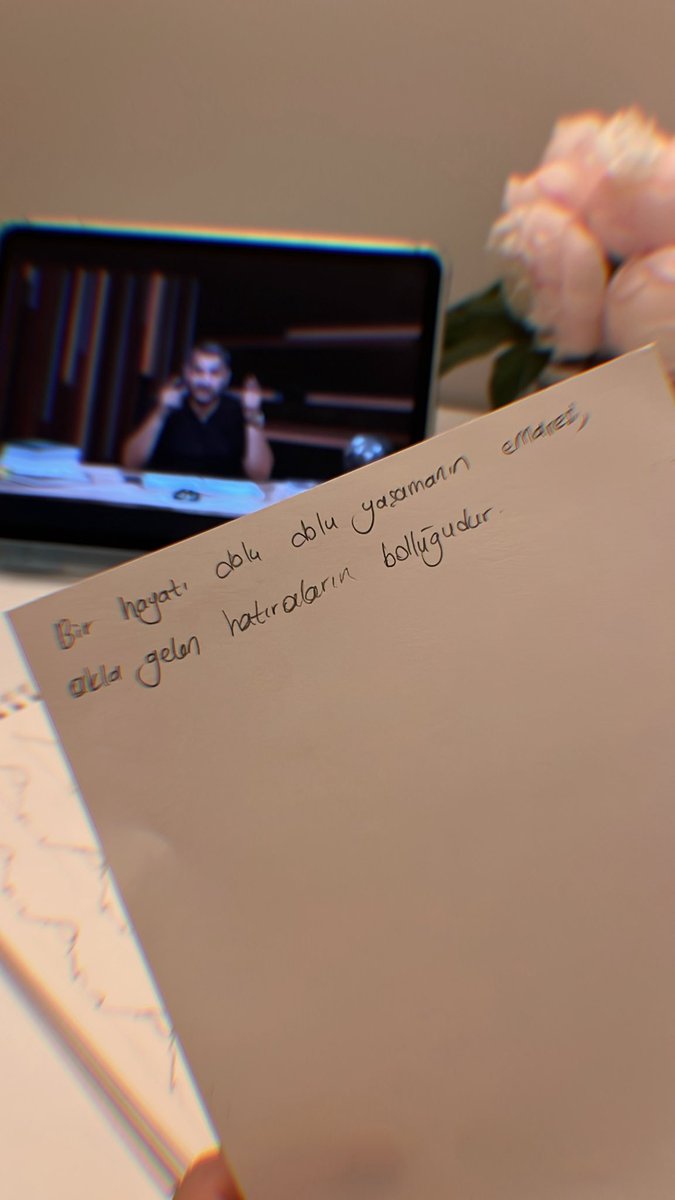 Bir hayatı dolu dolu yaşamanın emaresi,
akla gelen hatıraların bolluğudur.